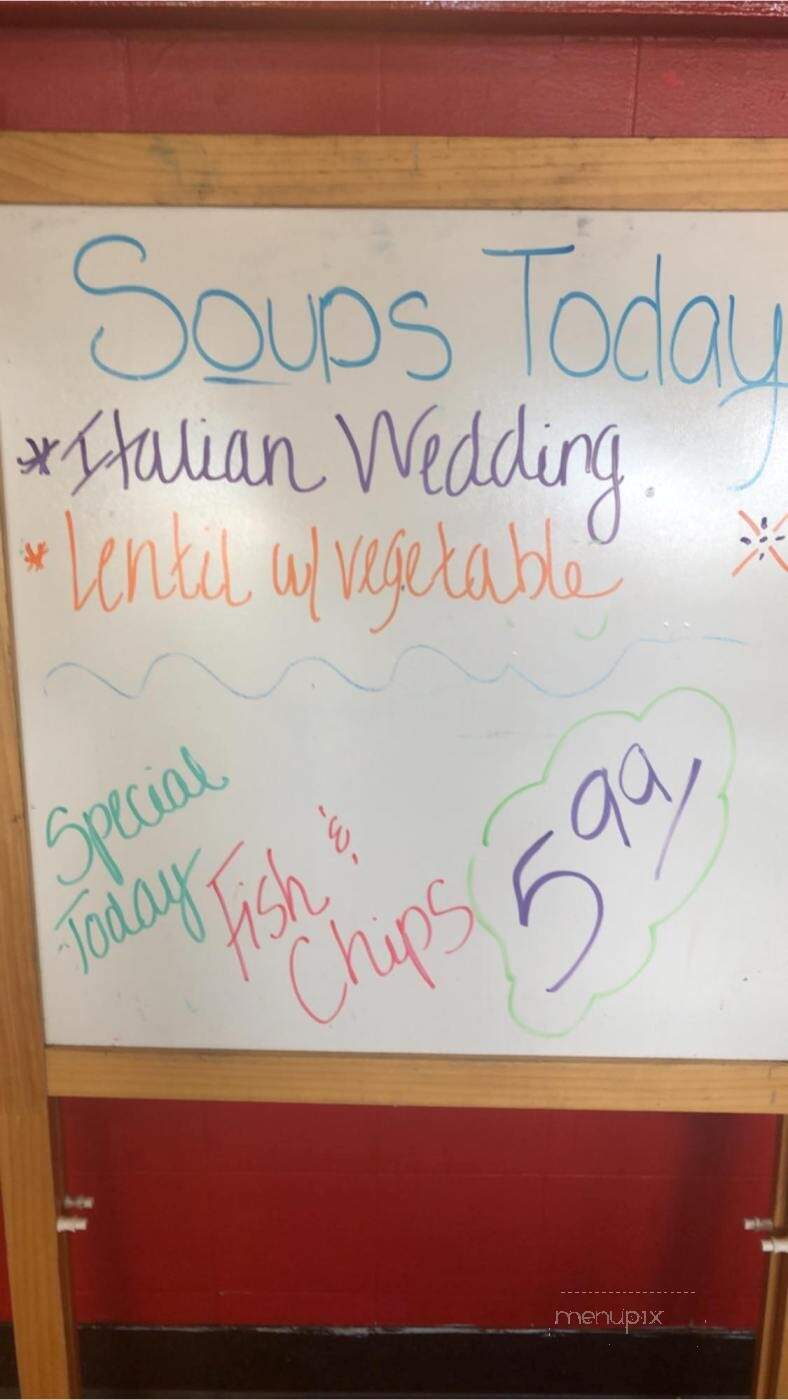 Soups Today
* Italian Wedding
* Lentil w/ vegetable
Special
Today
Fish &
Chips
5 99/
menupix